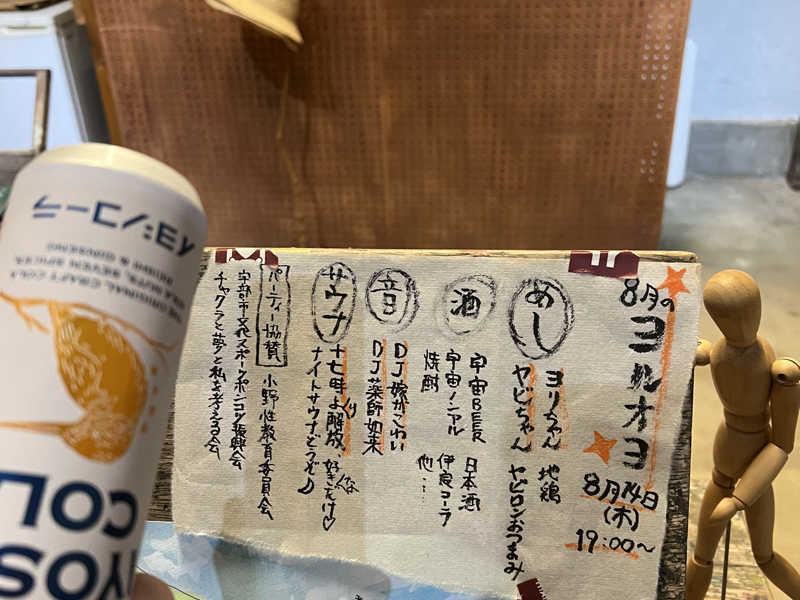 8月の
ヨルオヨ
8月14日
(木)
19:00〜
めし
ヨリちゃん 地鶏
ヤビちゃん ヤビロンおつまみ
酒
宇宙BEER 日本酒
宇宙ノンアル 伊良コーラ
焼酎 他…
音
DJ嫁がこわい
DJ薬師如来
サウナ
十七時より解放、好きなだけ♡
ナイトサウナどうぞ♪
パーティー協賛 小野性教育委員会
宇部市文化スポークポンコツ振興会
チャクラと夢と私を考える会
イヨシコーラ
THE ORIGINAL CRAFT COLA
KOLA NUTS, SEVEN SPICES,
REISHI & GINSENG
IYOS
COL